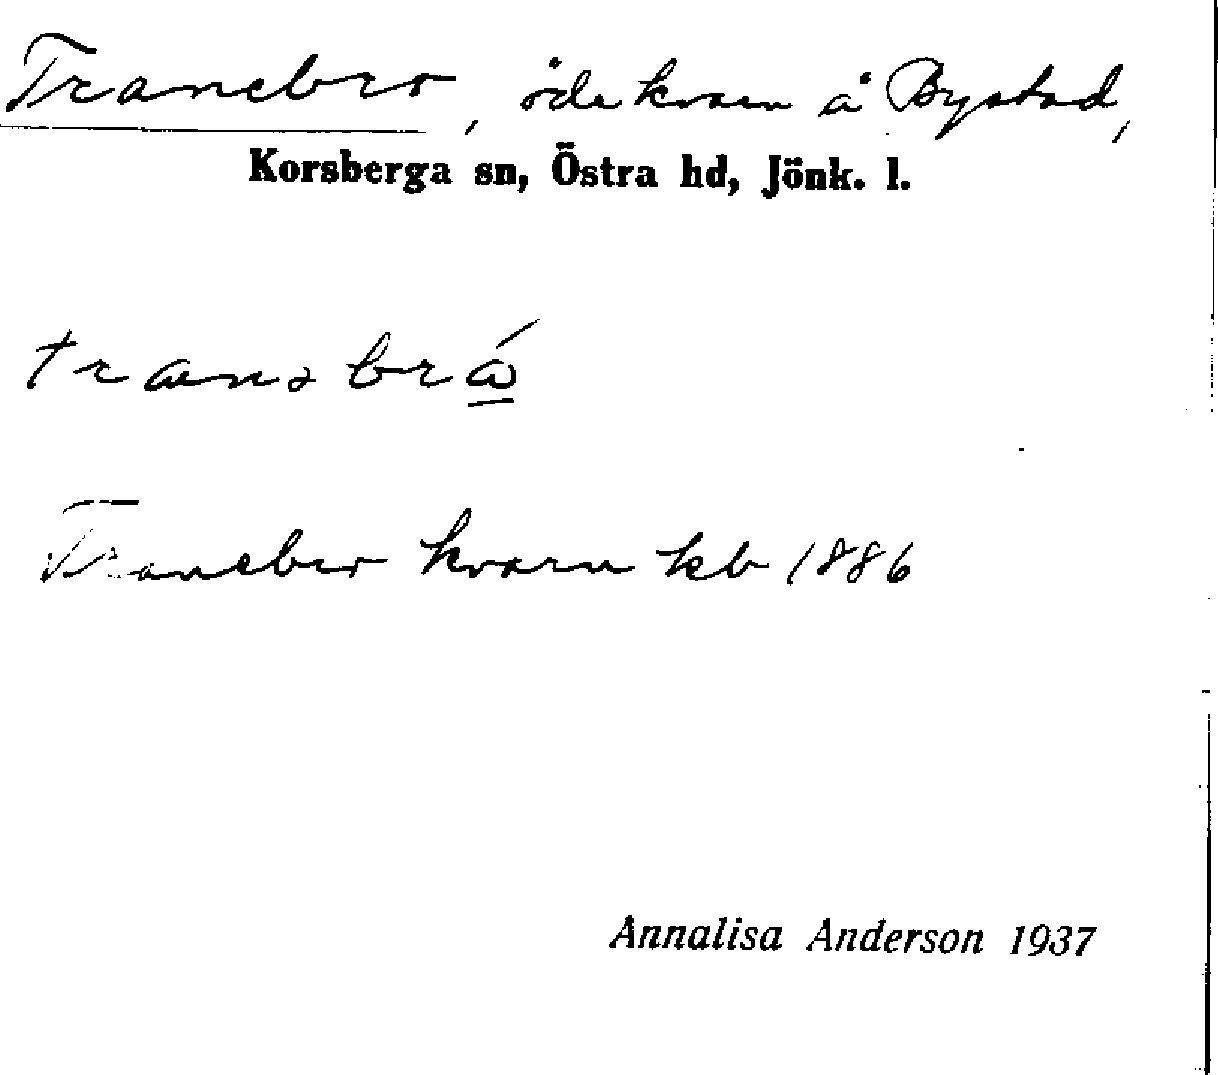 Tranebro, öde kvarn å Bystad,
Korsberga sn, Östra hd, Jönk. l.
tranəbrá̲
Tranebro kvarn kb 1886
Annalisa Anderson 1937